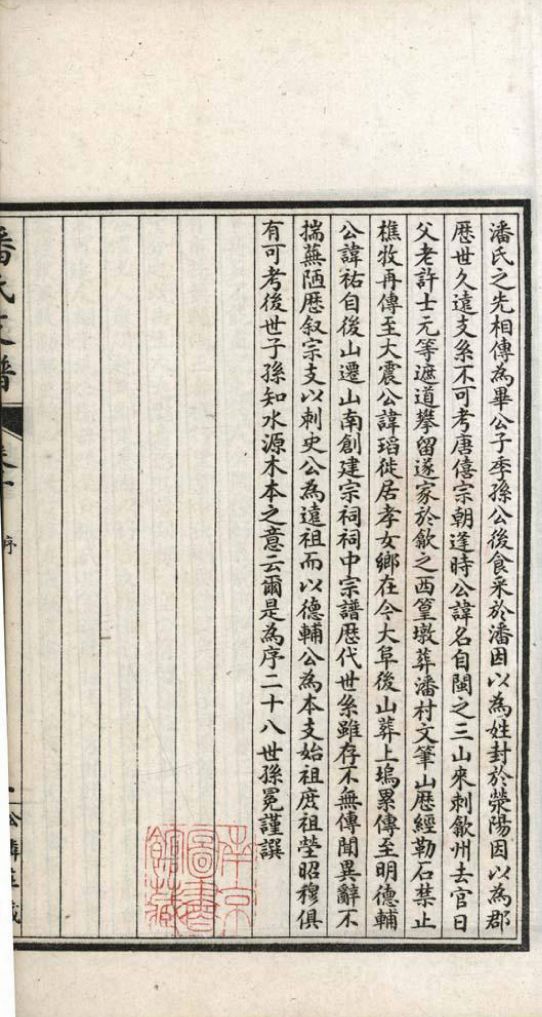 潘氏之先相傳為畢公子季孫公後食采於潘因以為姓封於滎陽因以為郡
歴世久遠支系不可考唐僖宗朝逢時公諱名自閩之三山來刺歙州去官日
父老許士元等遮道攀留遂家於歙之西篁墩葬潘村文筆山歴經勒石禁止
樵牧再傳至大震公諱瑫徙居孝女鄉在今大阜後山葬上塢累傳至明德輔
公諱祐自後山遷山南創建宗祠祠中宗譜歴代世系雖存不無傳聞異辭不
揣蕪陋歴叙宗支以刺史公為遠祖而以德輔公為本支始祖庶祖塋昭穆俱
有可考後世子孫知水源木本之意云爾是為序二十八世孫冕謹譔
潘氏支譜
序
南京
圖書
館藏